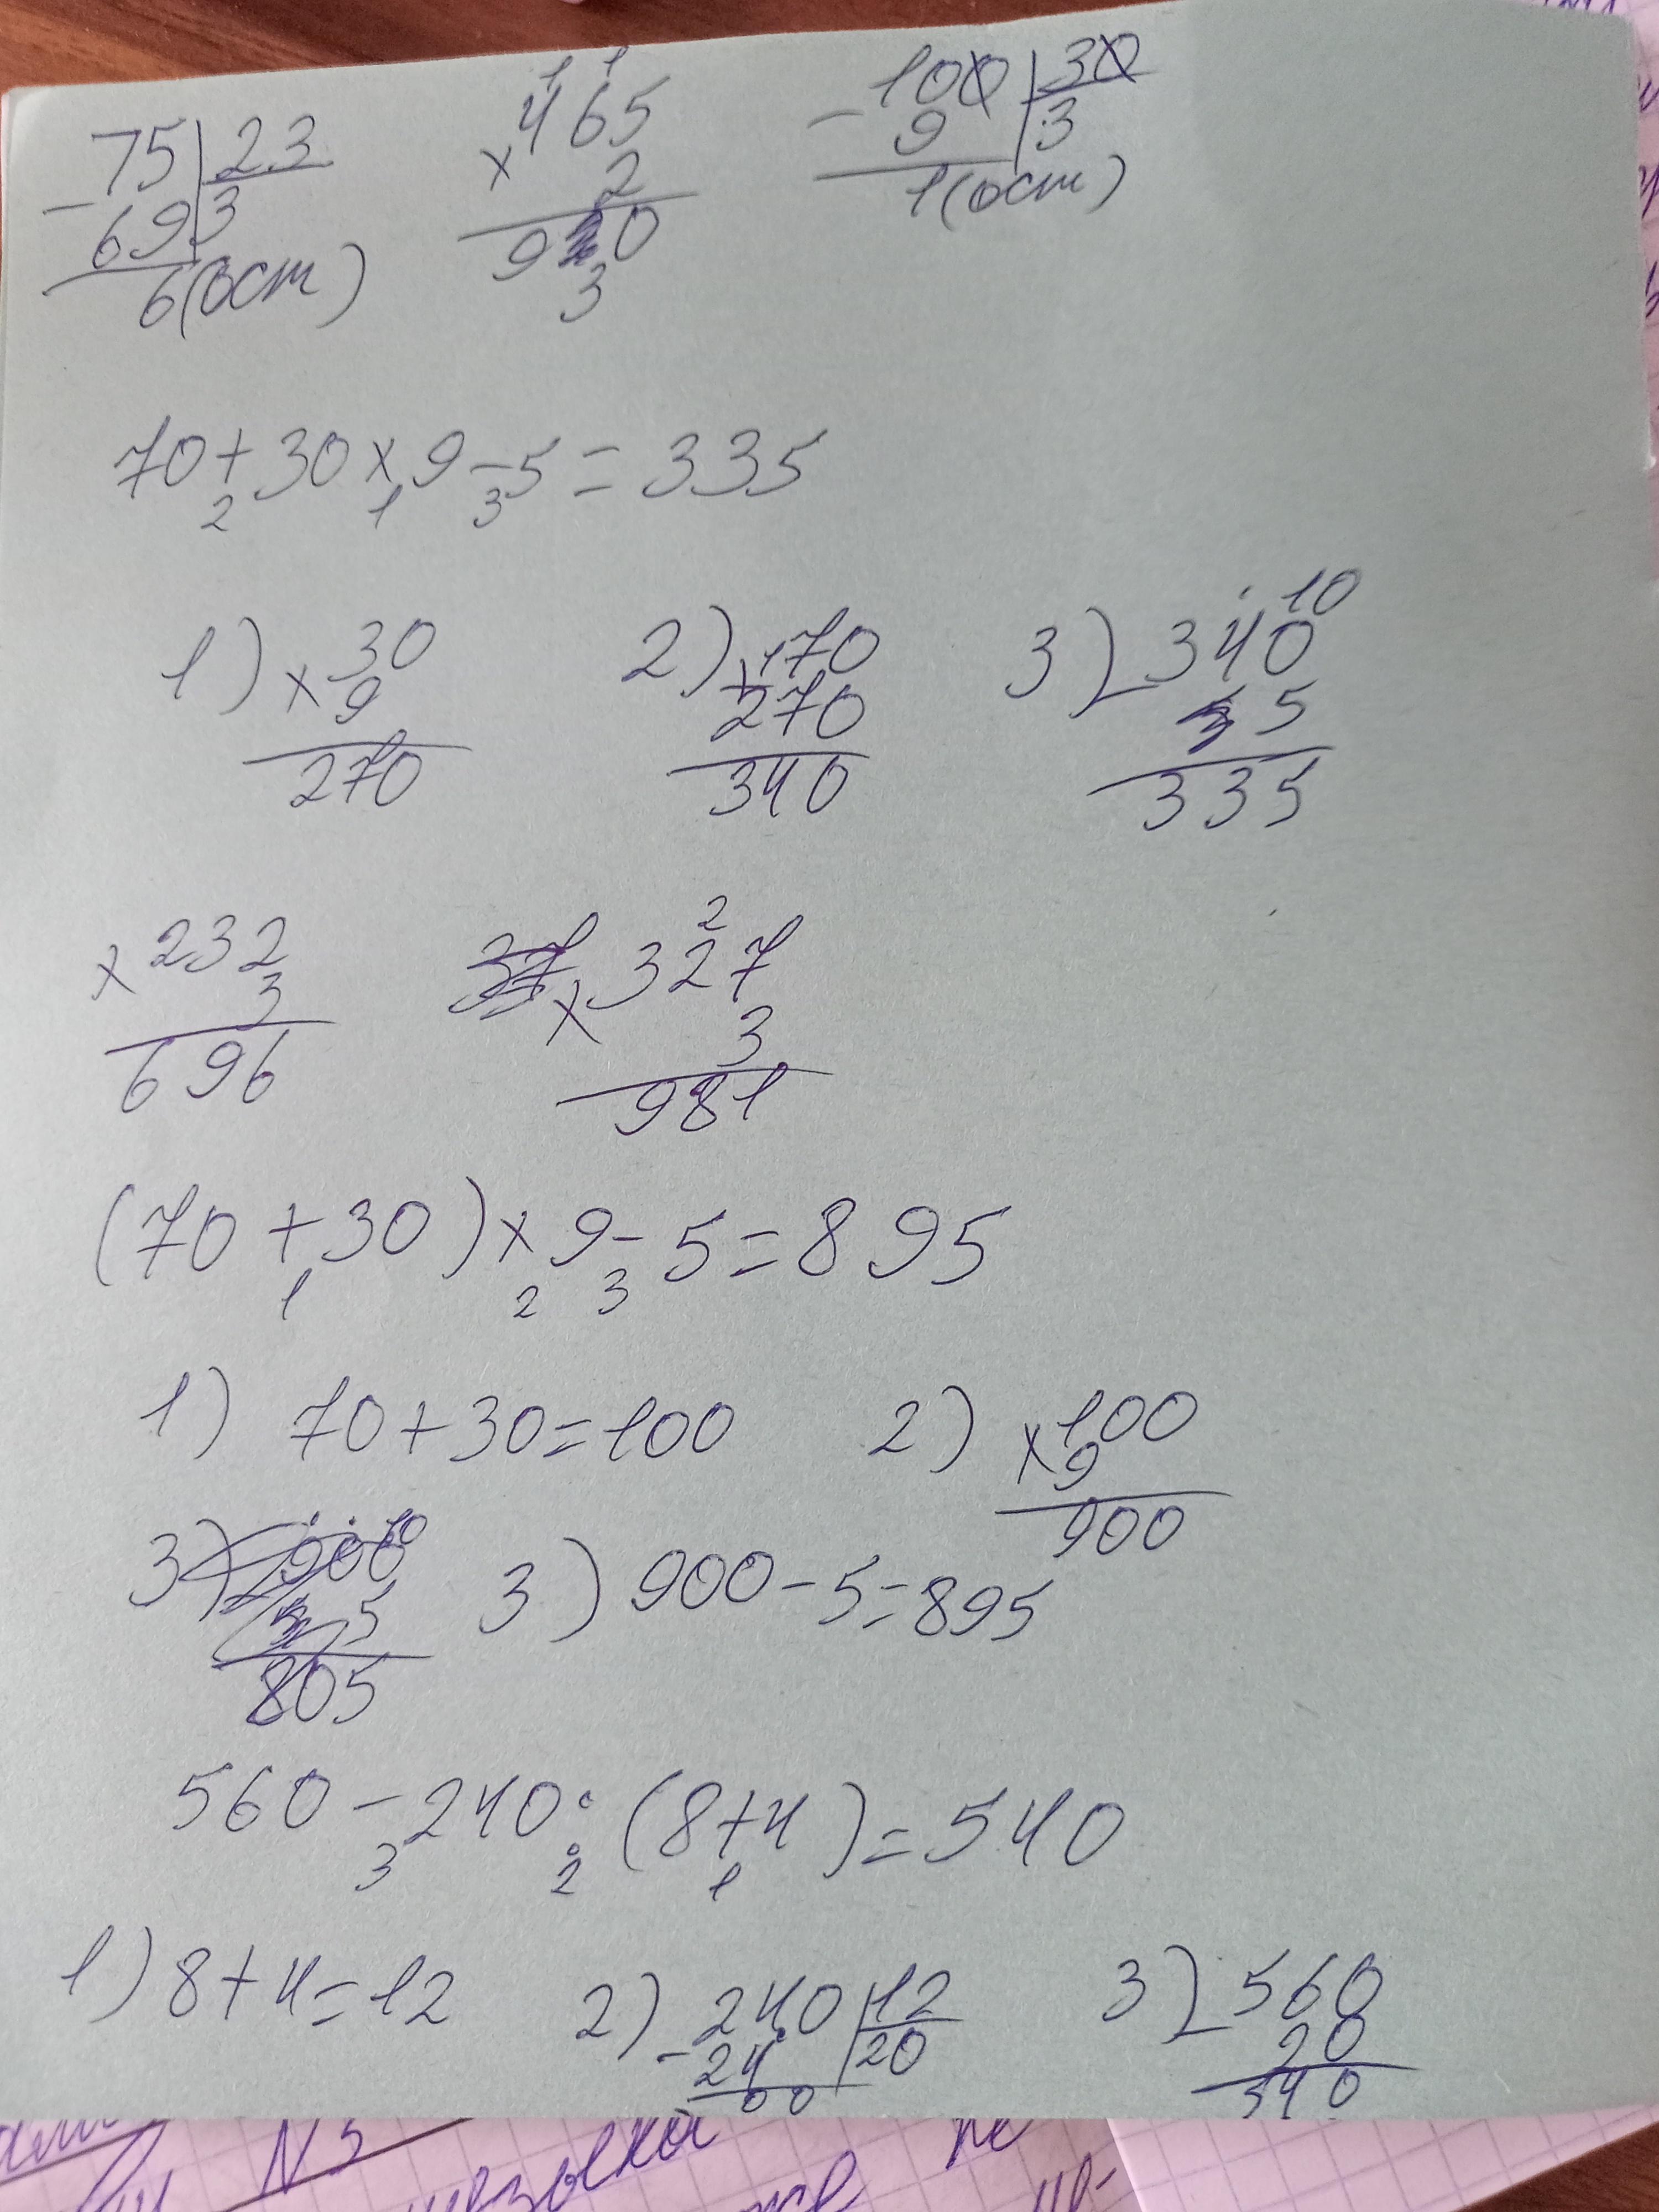 75 | 23
- 69 | 3
6(ост)
1 1
465
× 2
930
100 | 30
- 9 | 3
1(ост)
70 + 30 × 9 - 5 = 335
2 1 3
1) 30
× 9
270
2) 170
+ 270
340
3) 10
- 340
5
335
232
× 3
696
37
2
× 327
3
981
(70 + 30) × 9 - 5 = 895
1 2 3
1) 70 + 30 = 100
2) 100
× 9
900
3) 10
- 900
5
805
3) 900 - 5 = 895
560 - 240 : (8 + 4) = 540
3 2 1
1) 8 + 4 = 12
2) - 240 | 12
24 | 20
00
3) - 560
20
540
N3